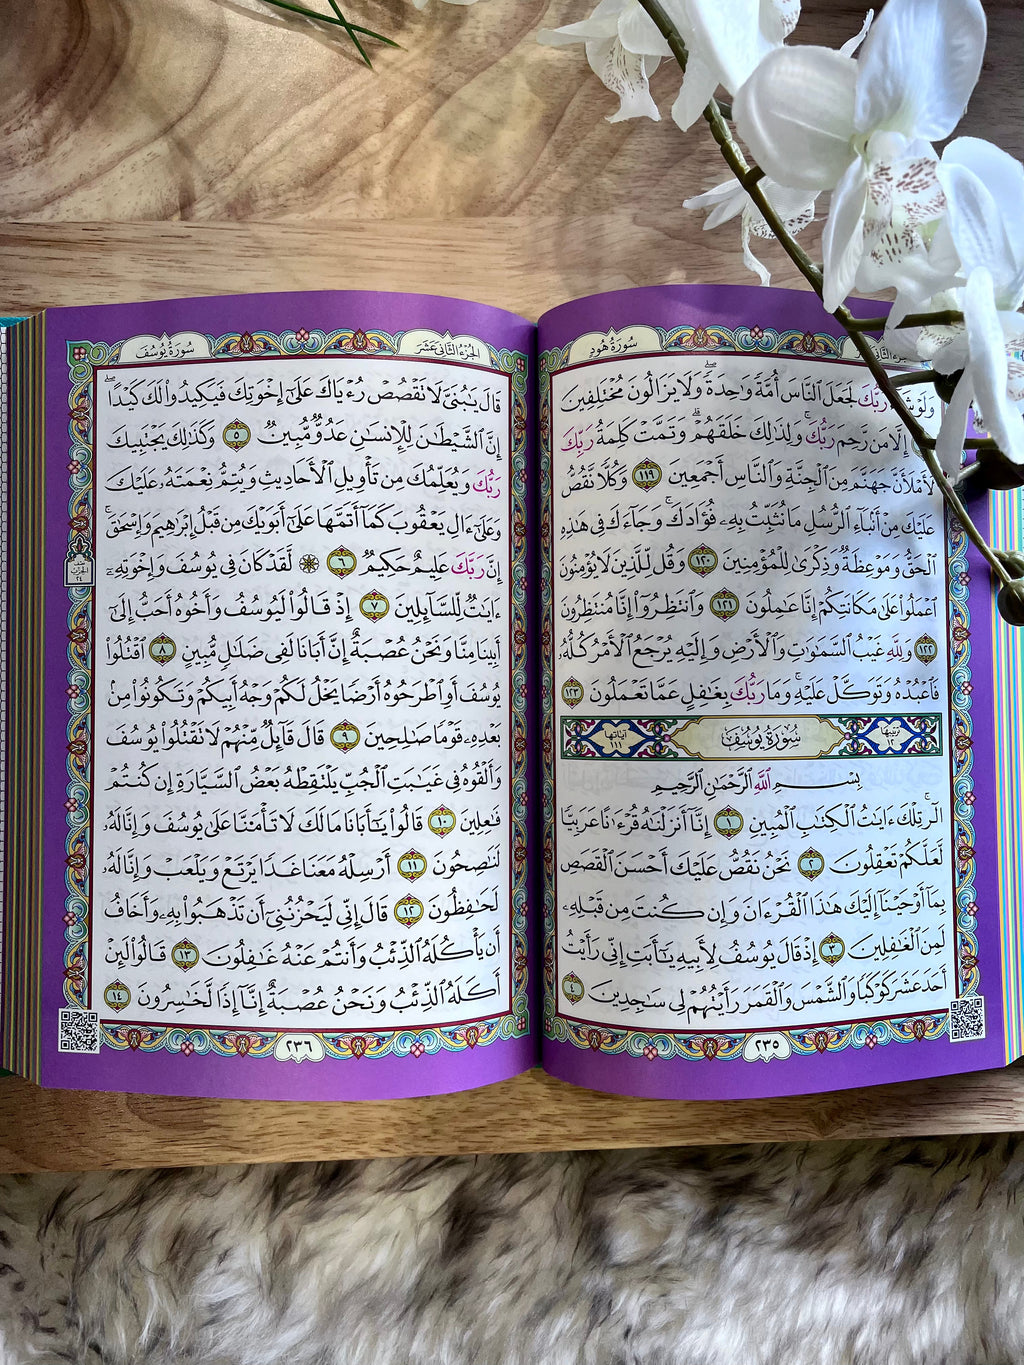 سُورَةُ هُودٍ
وَلَوْ شَ رَبُّكَ لَجَعَلَ ٱلنَّاسَ أُمَّةً وَٰحِدَةً ۖ وَلَا يَزَالُونَ مُخْتَلِفِينَ
إِلَّا مَن رَّحِمَ رَبُّكَ ۚ وَلِذَٰلِكَ خَلَقَهُمْ ۗ وَتَمَّتْ كَلِمَةُ رَبِّكَ
لَأَمْلَأَنَّ جَهَنَّمَ مِنَ ٱلْجِنَّةِ وَٱلنَّاسِ أَجْمَعِينَ ١١٩ وَكُلًّا نَّقُصُّ
عَلَيْكَ مِنْ أَنۢبَآءِ ٱلرُّسُلِ مَا نُثَبِّتُ بِهِۦ فُؤَادَكَ ۚ وَجَآءَكَ فِى هَٰذِهِ
ٱلْحَقُّ وَمَوْعِظَةٌ وَذِكْرَىٰ لِلْمُؤْمِنِينَ ١٢٠ وَقُل لِّلَّذِينَ لَا يُؤْمِنُونَ
ٱعْمَلُوا۟ عَلَىٰ مَكَانَتِكُمْ إِنَّا عَٰمِلُونَ ١٢١ وَٱنتَظِرُوٓا۟ إِنَّا مُنتَظِرُونَ
١٢٢ وَلِلَّهِ غَيْبُ ٱلسَّمَٰوَٰتِ وَٱلْأَرْضِ وَإِلَيْهِ يُرْجَعُ ٱلْأَمْرُ كُلُّهُۥ
فَٱعْبُدْهُ وَتَوَكَّلْ عَلَيْهِ ۚ وَمَا رَبُّكَ بِغَٰفِلٍ عَمَّا تَعْمَلُونَ ١٢٣
ترتيبها ١٢ سُورَةُ يُوسُفَ آياتها ١١١
بِسْمِ ٱللَّهِ ٱلرَّحْمَٰنِ ٱلرَّحِيمِ
الٓر ۚ تِلْكَ ءَايَٰتُ ٱلْكِتَٰبِ ٱلْمُبِينِ ١ إِنَّآ أَنزَلْنَٰهُ قُرْءَٰنًا عَرَبِيًّا
لَّعَلَّكُمْ تَعْقِلُونَ ٢ نَحْنُ نَقُصُّ عَلَيْكَ أَحْسَنَ ٱلْقَصَصِ
بِمَآ أَوْحَيْنَآ إِلَيْكَ هَٰذَا ٱلْقُرْءَانَ وَإِن كُنتَ مِن قَبْلِهِۦ
لَمِنَ ٱلْغَٰفِلِينَ ٣ إِذْ قَالَ يُوسُفُ لِأَبِيهِ يَٰٓأَبَتِ إِنِّى رَأَيْتُ
أَحَدَ عَشَرَ كَوْكَبًا وَٱلشَّمْسَ وَٱلْقَمَرَ رَأَيْتُهُمْ لِى سَٰجِدِينَ ٤
٢٣٥
الجُزْءُ الثَّانِى عَشَرَ
سُورَةُ يُوسُفَ
قَالَ يَٰبُنَىَّ لَا تَقْصُصْ رُءْيَاكَ عَلَىٰٓ إِخْوَتِكَ فَيَكِيدُوا۟ لَكَ كَيْدًا ۖ
إِنَّ ٱلشَّيْطَٰنَ لِلْإِنسَٰنِ عَدُوٌّ مُّبِينٌ ٥ وَكَذَٰلِكَ يَجْتَبِيكَ
رَبُّكَ وَيُعَلِّمُكَ مِن تَأْوِيلِ ٱلْأَحَادِيثِ وَيُتِمُّ نِعْمَتَهُۥ عَلَيْكَ
وَعَلَىٰٓ ءَالِ يَعْقُوبَ كَمَآ أَتَمَّهَا عَلَىٰٓ أَبَوَيْكَ مِن قَبْلُ إِبْرَٰهِيمَ وَإِسْحَٰقَ ۚ
إِنَّ رَبَّكَ عَلِيمٌ حَكِيمٌ ٦ ۞ لَّقَدْ كَانَ فِى يُوسُفَ وَإِخْوَتِهِۦٓ
ءَايَٰتٌ لِّلسَّآئِلِينَ ٧ إِذْ قَالُوا۟ لَيُوسُفُ وَأَخُوهُ أَحَبُّ إِلَىٰٓ
أَبِينَا مِنَّا وَنَحْنُ عُصْبَةٌ إِنَّ أَبَانَا لَفِى ضَلَٰلٍ مُّبِينٍ ٨ ٱقْتُلُوا۟
يُوسُفَ أَوِ ٱطْرَحُوهُ أَرْضًا يَخْلُ لَكُمْ وَجْهُ أَبِيكُمْ وَتَكُونُوا۟ مِنۢ
بَعْدِهِۦ قَوْمًا صَٰلِحِينَ ٩ قَالَ قَآئِلٌ مِّنْهُمْ لَا تَقْتُلُوا۟ يُوسُفَ
وَأَلْقُوهُ فِى غَيَٰبَتِ ٱلْجُبِّ يَلْتَقِطْهُ بَعْضُ ٱلسَّيَّارَةِ إِن كُنتُمْ
فَٰعِلِينَ ١٠ قَالُوا۟ يَٰٓأَبَانَا مَا لَكَ لَا تَأْمَ۫نَّا عَلَىٰ يُوسُفَ وَإِنَّا لَهُۥ
لَنَٰصِحُونَ ١١ أَرْسِلْهُ مَعَنَا غَدًا يَرْتَعْ وَيَلْعَبْ وَإِنَّا لَهُۥ
لَحَٰفِظُونَ ١٢ قَالَ إِنِّى لَيَحْزُنُنِىٓ أَن تَذْهَبُوا۟ بِهِۦ وَأَخَافُ
أَن يَأْكُلَهُ ٱلذِّئْبُ وَأَنتُمْ عَنْهُ غَٰفِلُونَ ١٣ قَالُوا۟ لَئِنْ
أَكَلَهُ ٱلذِّئْبُ وَنَحْنُ عُصْبَةٌ إِنَّآ إِذًا لَّخَٰسِرُونَ ١٤
٢٣٦